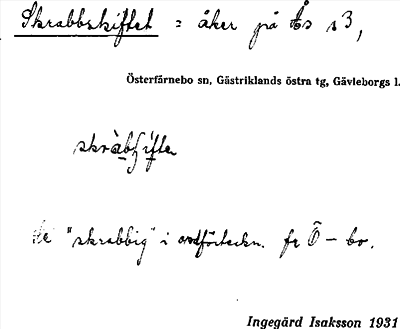 Skrabbskiftet = åker på Ås s3,
Österfärnebo sn, Gästriklands östra tg, Gävleborgs l.
skràbʃifta
Se "skrabbig" i ordförteckn. fr Ö-bo.
Ingegärd Isaksson 1931